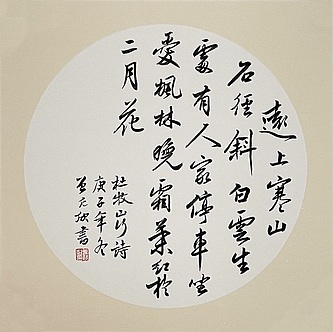 遠上寒山
石徑斜白雲生
處有人家停車坐
愛楓林晚霜葉紅於
二月花
杜牧山行詩
庚子年冬
書